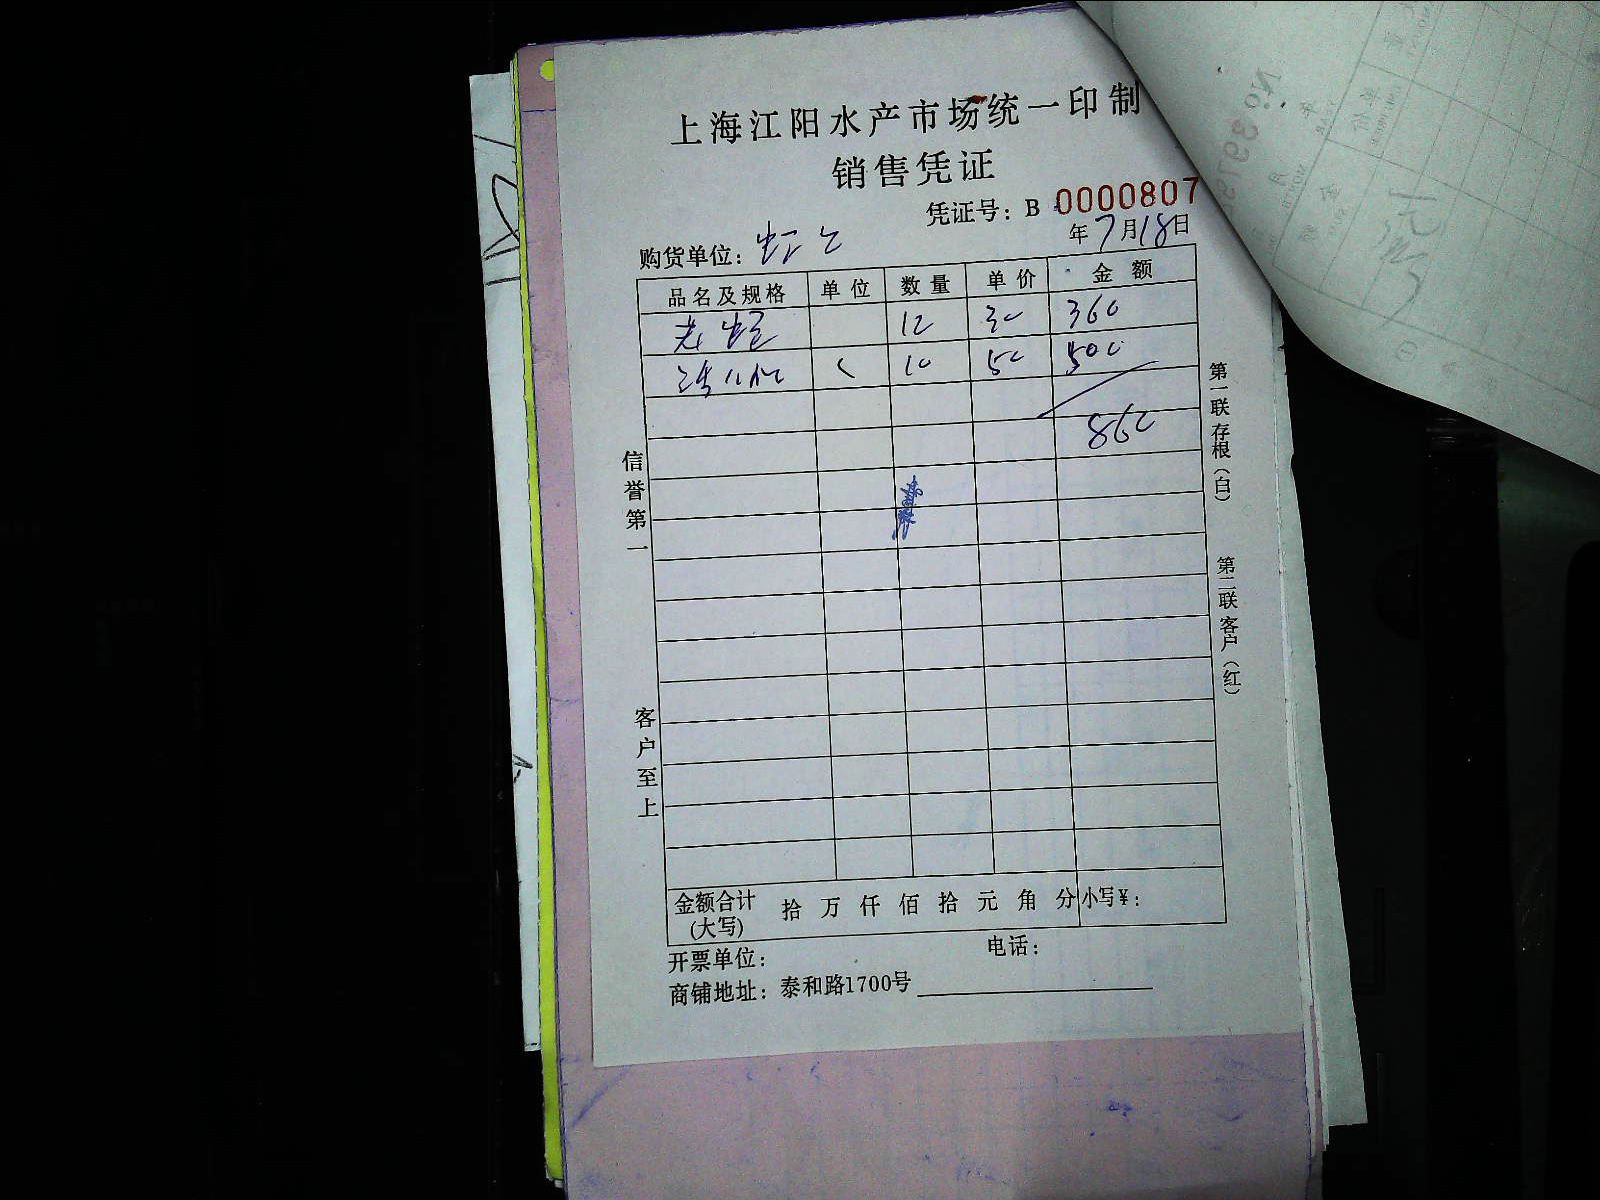 上海江阳水产市场统一印制
销售凭证
凭证号：B 0000807
年7月18日
购货单位：
品名及规格 单位 数量 单价 金额
12 30 360
10 50 500
860
信誉第一
客户至上
第一联存根（白）
第二联客户（红）
金额合计(大写) 拾 万 仟 佰 拾 元 角 分 小写¥：
开票单位： 电话：
商铺地址：泰和路1700号